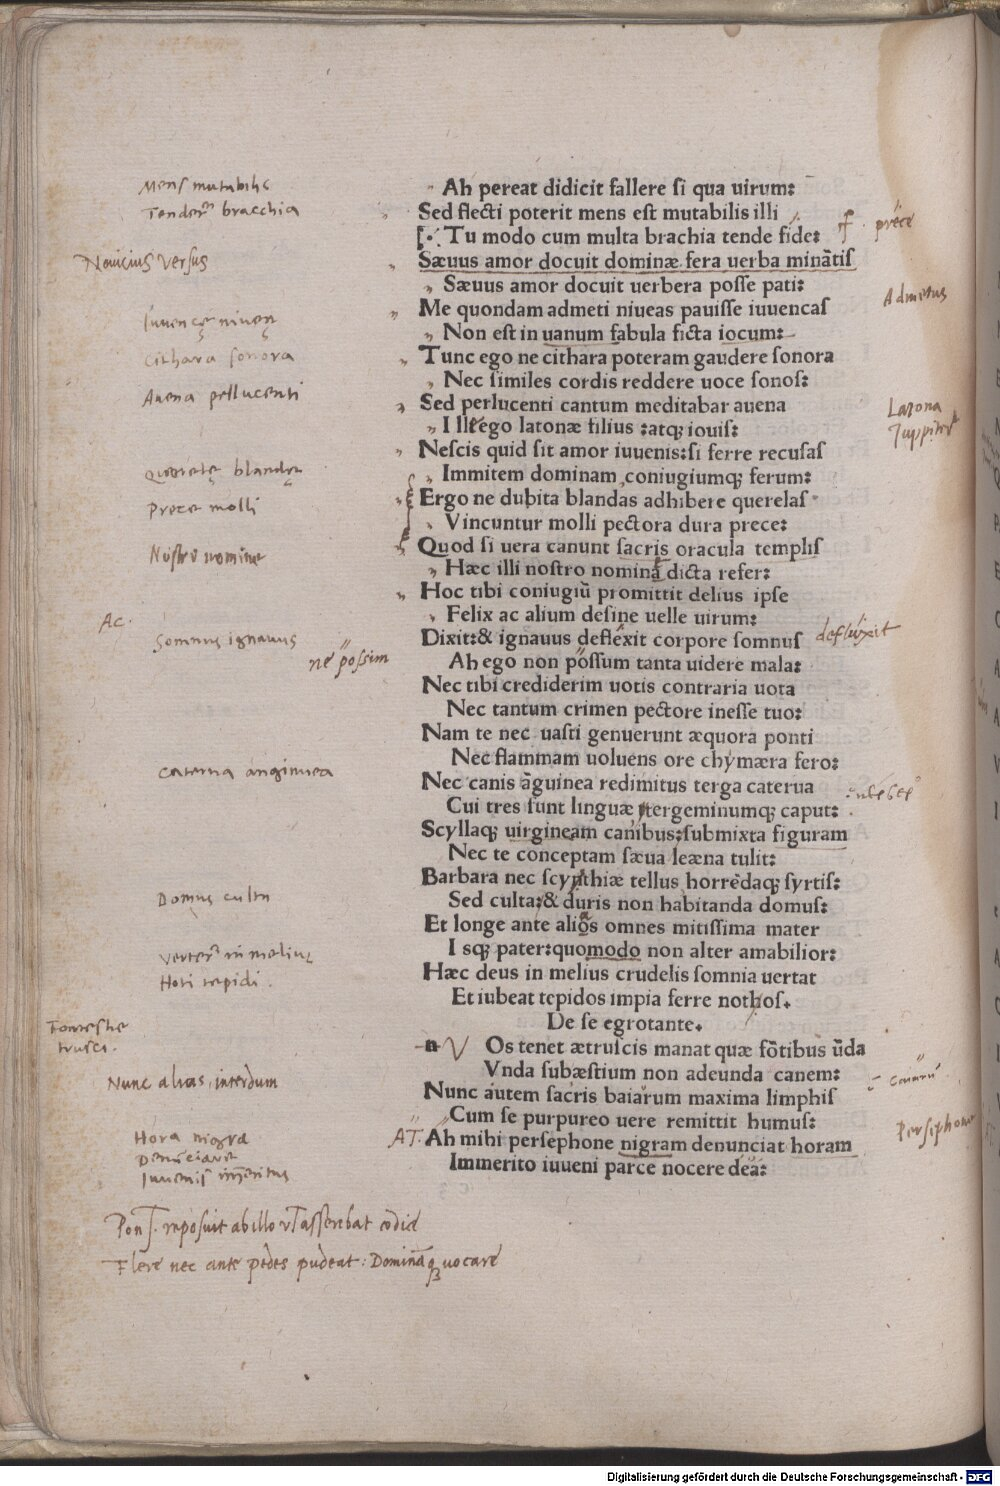 Mens mutabilis
Tender bracchia
Novicius versus
Iuuencę niveę
Cithara sonora
Auena pellucenti
Querelę blandę
Prece molli
Nostro nomine
Ac.
Somnus ignauus
ne possim
Caterua anguinea
Domus culta
Verter in melius
Noti tepidi.
Fontes he
trusci.
Nunc alias, interdum
Hora nigra
Denũciare
Iuuenis im̃eritus
Ah pereat didicit fallere ſi qua uirum:
Sed flecti poterit mens eſt mutabilis illi
Tu modo cum multa brachia tende fide:
Sæuus amor docuit dominæ fera uerba minãtiſ
Sæuus amor docuit uerbera poſſe pati:
Me quondam admeti niueas pauiſſe iuuencaſ
Non eſt in uanum fabula ficta iocum:
Tunc ego ne cithara poteram gaudere ſonora
Nec ſimiles cordis reddere uoce ſonoſ:
Sed perlucenti cantum meditabar auena
I lle ego latonæ filius :atq; iouiſ:
Neſcis quid ſit amor iuuenis:ſi ferre recuſaſ
Immitem dominam coniugiumq; ferum:
Ergo ne dubita blandas adhibere querelaſ
Vincuntur molli pectora dura prece:
Quod ſi uera canunt ſacris oracula templiſ
Hæc illi noſtro nomina dicta refer:
Hoc tibi coniugiũ promittit delius ipſe
Felix ac alium deſine uelle uirum:
Dixit:& ignauus deflexit corpore ſomnuſ
Ah ego non poſſum tanta uidere mala:
Nec tibi crediderim uotis contraria uota
Nec tantum crimen pectore ineſſe tuo:
Nam te nec uaſti genuerunt æquora ponti
Nec flammam uoluens ore chymæra fero:
Nec canis ãguinea redimitus terga caterua
Cui tres ſunt linguæ tergeminumq; caput:
Scyllaq; uirgineam canibus:ſubmixta figuram
Nec te conceptam ſæua leæna tulit:
Barbara nec ſcynthiæ tellus horrẽdaq; ſyrtiſ:
Sed culta:& duris non habitanda domuſ:
Et longe ante alios omnes mitiſſima mater
I sq; pater:quomodo non alter amabilior:
Hæc deus in melius crudelis ſomnia uertat
Et iubeat tepidos impia ferre nothoſ.
De ſe egrotante.
n V Os tenet ætruſcis manat quæ fõtibus ũda
Vnda ſubæſtium non adeunda canem:
Nunc autem ſacris baiarum maxima limphiſ
Cum ſe purpureo uere remittit humuſ:
Ah mihi perſephone nigram denunciat horam
Immerito iuueni parce nocere dea:
prece
Admetus
Latona
Iuppiter
defluxit
Persephone
Flere nec ante pedes pudeat: Dominãq; vocare
Digitalisierung gefördert durch die Deutsche Forschungsgemeinschaft - DFG